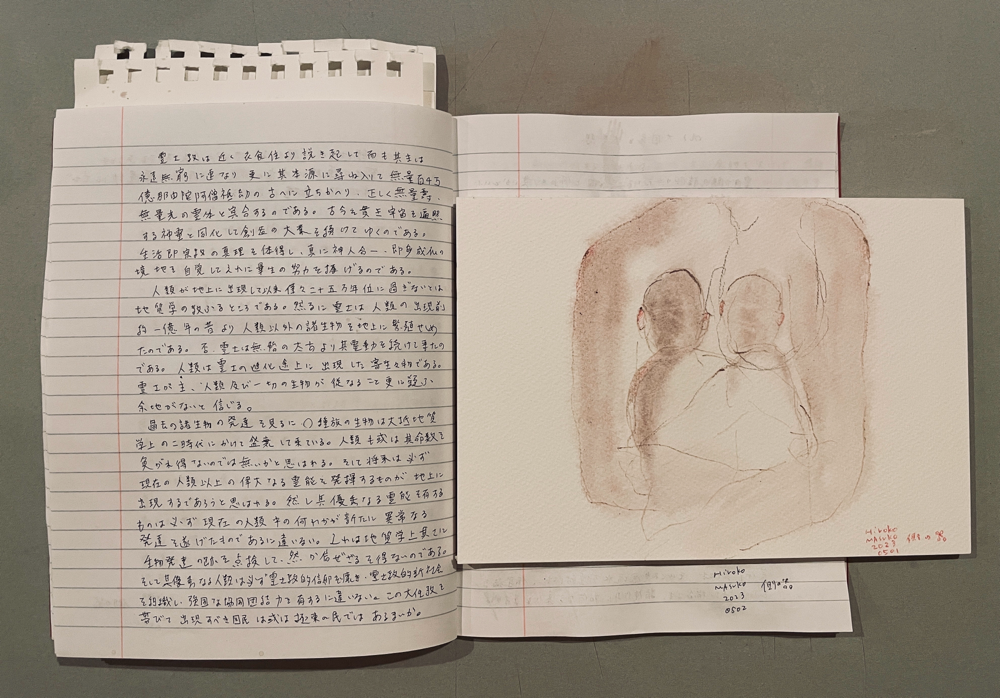 霊士教は近く衣食住より説き起して而も其生は
永遠無窮に連なり更に其本源に尋ね入りて無量百千万
億那由陀阿僧祇劫の古へに立ちかへり、正しく無量寿、
無量光の霊体と冥合するのである。古今を貫き宇宙を遍照
する神霊と同化して創造の大業を続けてゆくのである。
生活即宗教の真理を体得し、更に神人合一、即身成仏の
境地を自覚してそれに畢生の努力を捧げるのである。
人類が地上に出現して以来僅々二十五万年位に過ぎないとは
地質学の教ふるところである。然るに霊士は人類の出現前
約一億年の昔より人類以外の諸生物を地上に繁殖せしめ
たのである。否、霊士は無始の太古より其霊動を続けて来たの
である。人類は霊士の進化途上に出現した寄生々物である。
霊士が主、人類及び一切の生物が従なること更に疑ふ
余地がないと信じる。
過去の諸生物の発達を見るに一種族の生物は大抵地質
学上の二時代にかけて盛衰して来ている。人類も或は其命数を
免がれ得ないのでは無いかと思はれる。そして将来は必ず
現在の人類以上の偉大なる霊能を発揮するものが地上に
出現するであろうと思はれる。然し其優秀なる霊能を有する
ものは必ず現在の人類中の何れかが新たに異常なる
発達を遂げたものであるに違いない。これは地質学上其他に
生物発達の跡を点検して、然か信ぜざるを得ないのである。
そして其優秀なる人類は必ず霊士教的信仰を懐き、霊士教的新社会
を組織し、強固な協同団結力を有するに違いない。この大任務を
帯びて出現すべき国民は或は極東の民ではあるまいか。
Hiroko
Masuko
2023
0501
Hiroko
Masuko
2023
0502